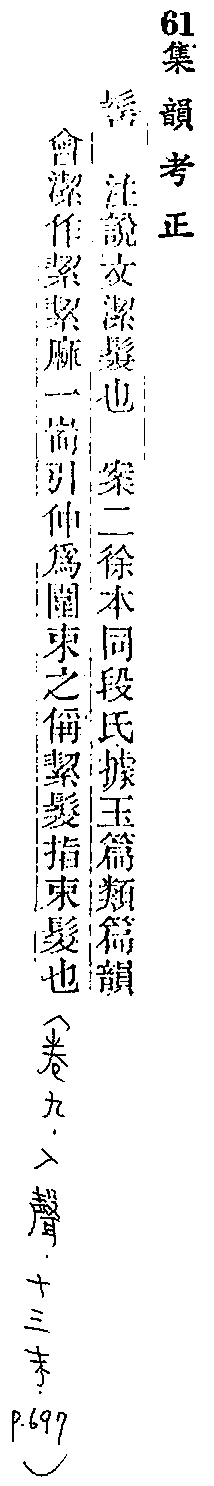 61 集韻考正
髺 注說文潔髮也 案二徐本同段氏據玉篇類篇韻
會潔作絜絜麻一耑引伸爲圍束之偁絜髮指束髮也(卷九.入聲.十三末.P.697)